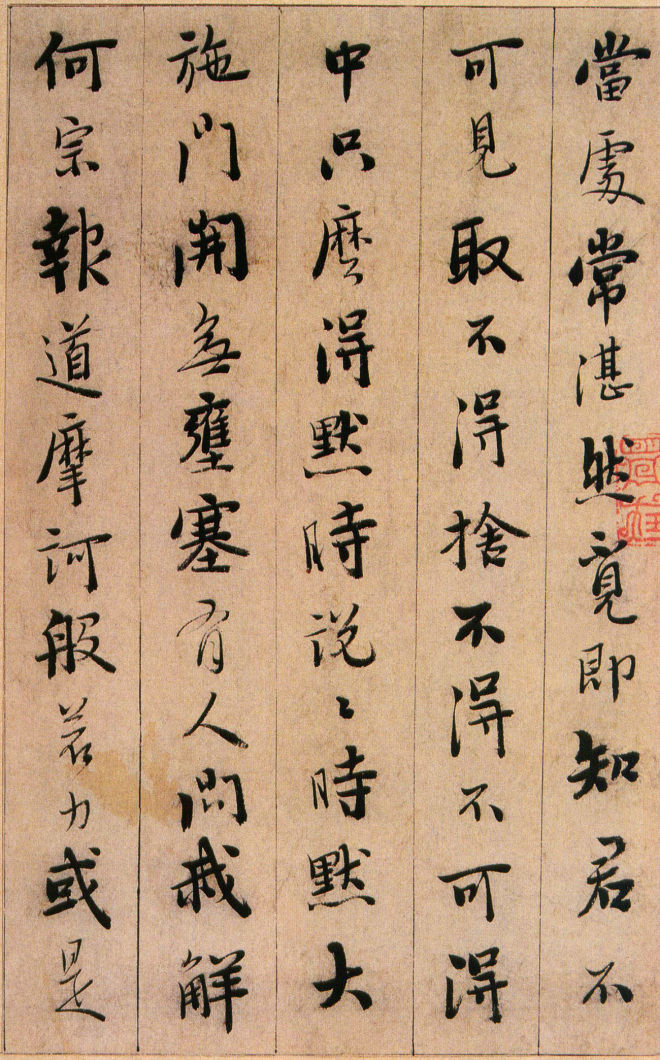 當處常湛然覓即知君不
可見取不得捨不得不可得
中只麼得默時說〻時默大
施門開無壅塞有人問我解
何宗報道摩訶般若力或是